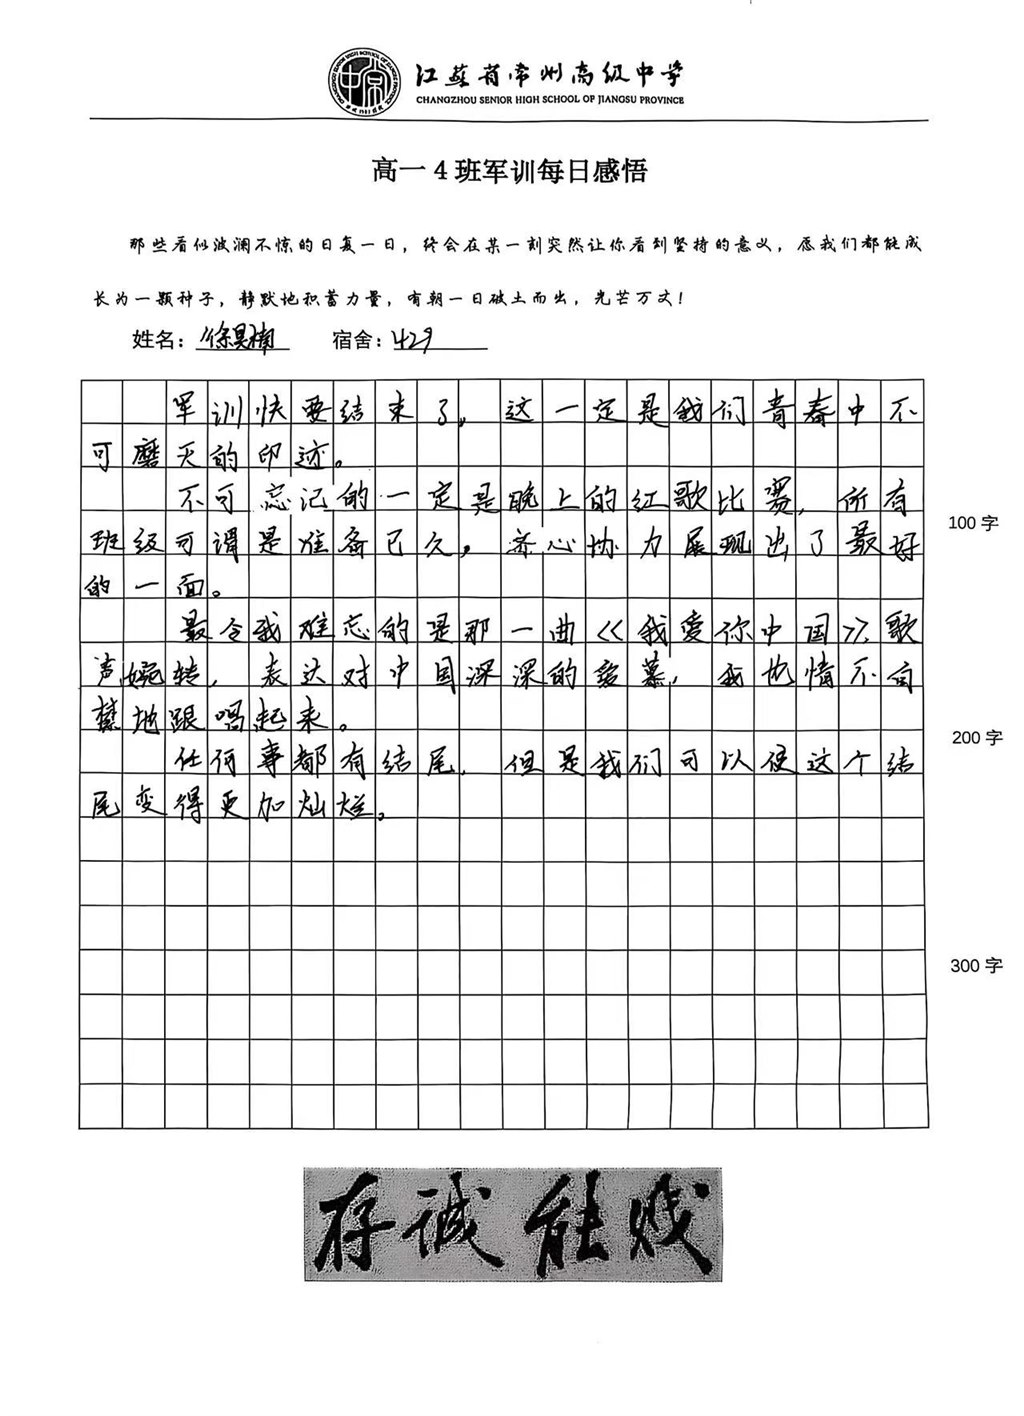 江苏省常州高级中学
CHANGZHOU SENIOR HIGH SCHOOL OF JIANGSU PROVINCE
高一 4 班军训每日感悟
那些看似波澜不惊的日复一日，终会在某一刻突然让你看到坚持的意义，愿我们都能成
长为一颗种子，静默地积蓄力量，有朝一日破土而出，光芒万丈！
姓名：徐昊楠 宿舍：429
军训快要结束了，这一定是我们青春中不
可磨灭的印迹。
不可忘记的一定是晚上的红歌比赛，所有
100 字
班级可谓是准备已久，齐心协力展现出了最好
的一面。
最令我难忘的是那一曲《我爱你中国》，歌
声婉转，表达对中国深深的爱慕，我也情不自
禁地跟唱起来。
200 字
任何事都有结尾，但是我们可以使这个结
尾变得更加灿烂。
300 字
存诚 能贱